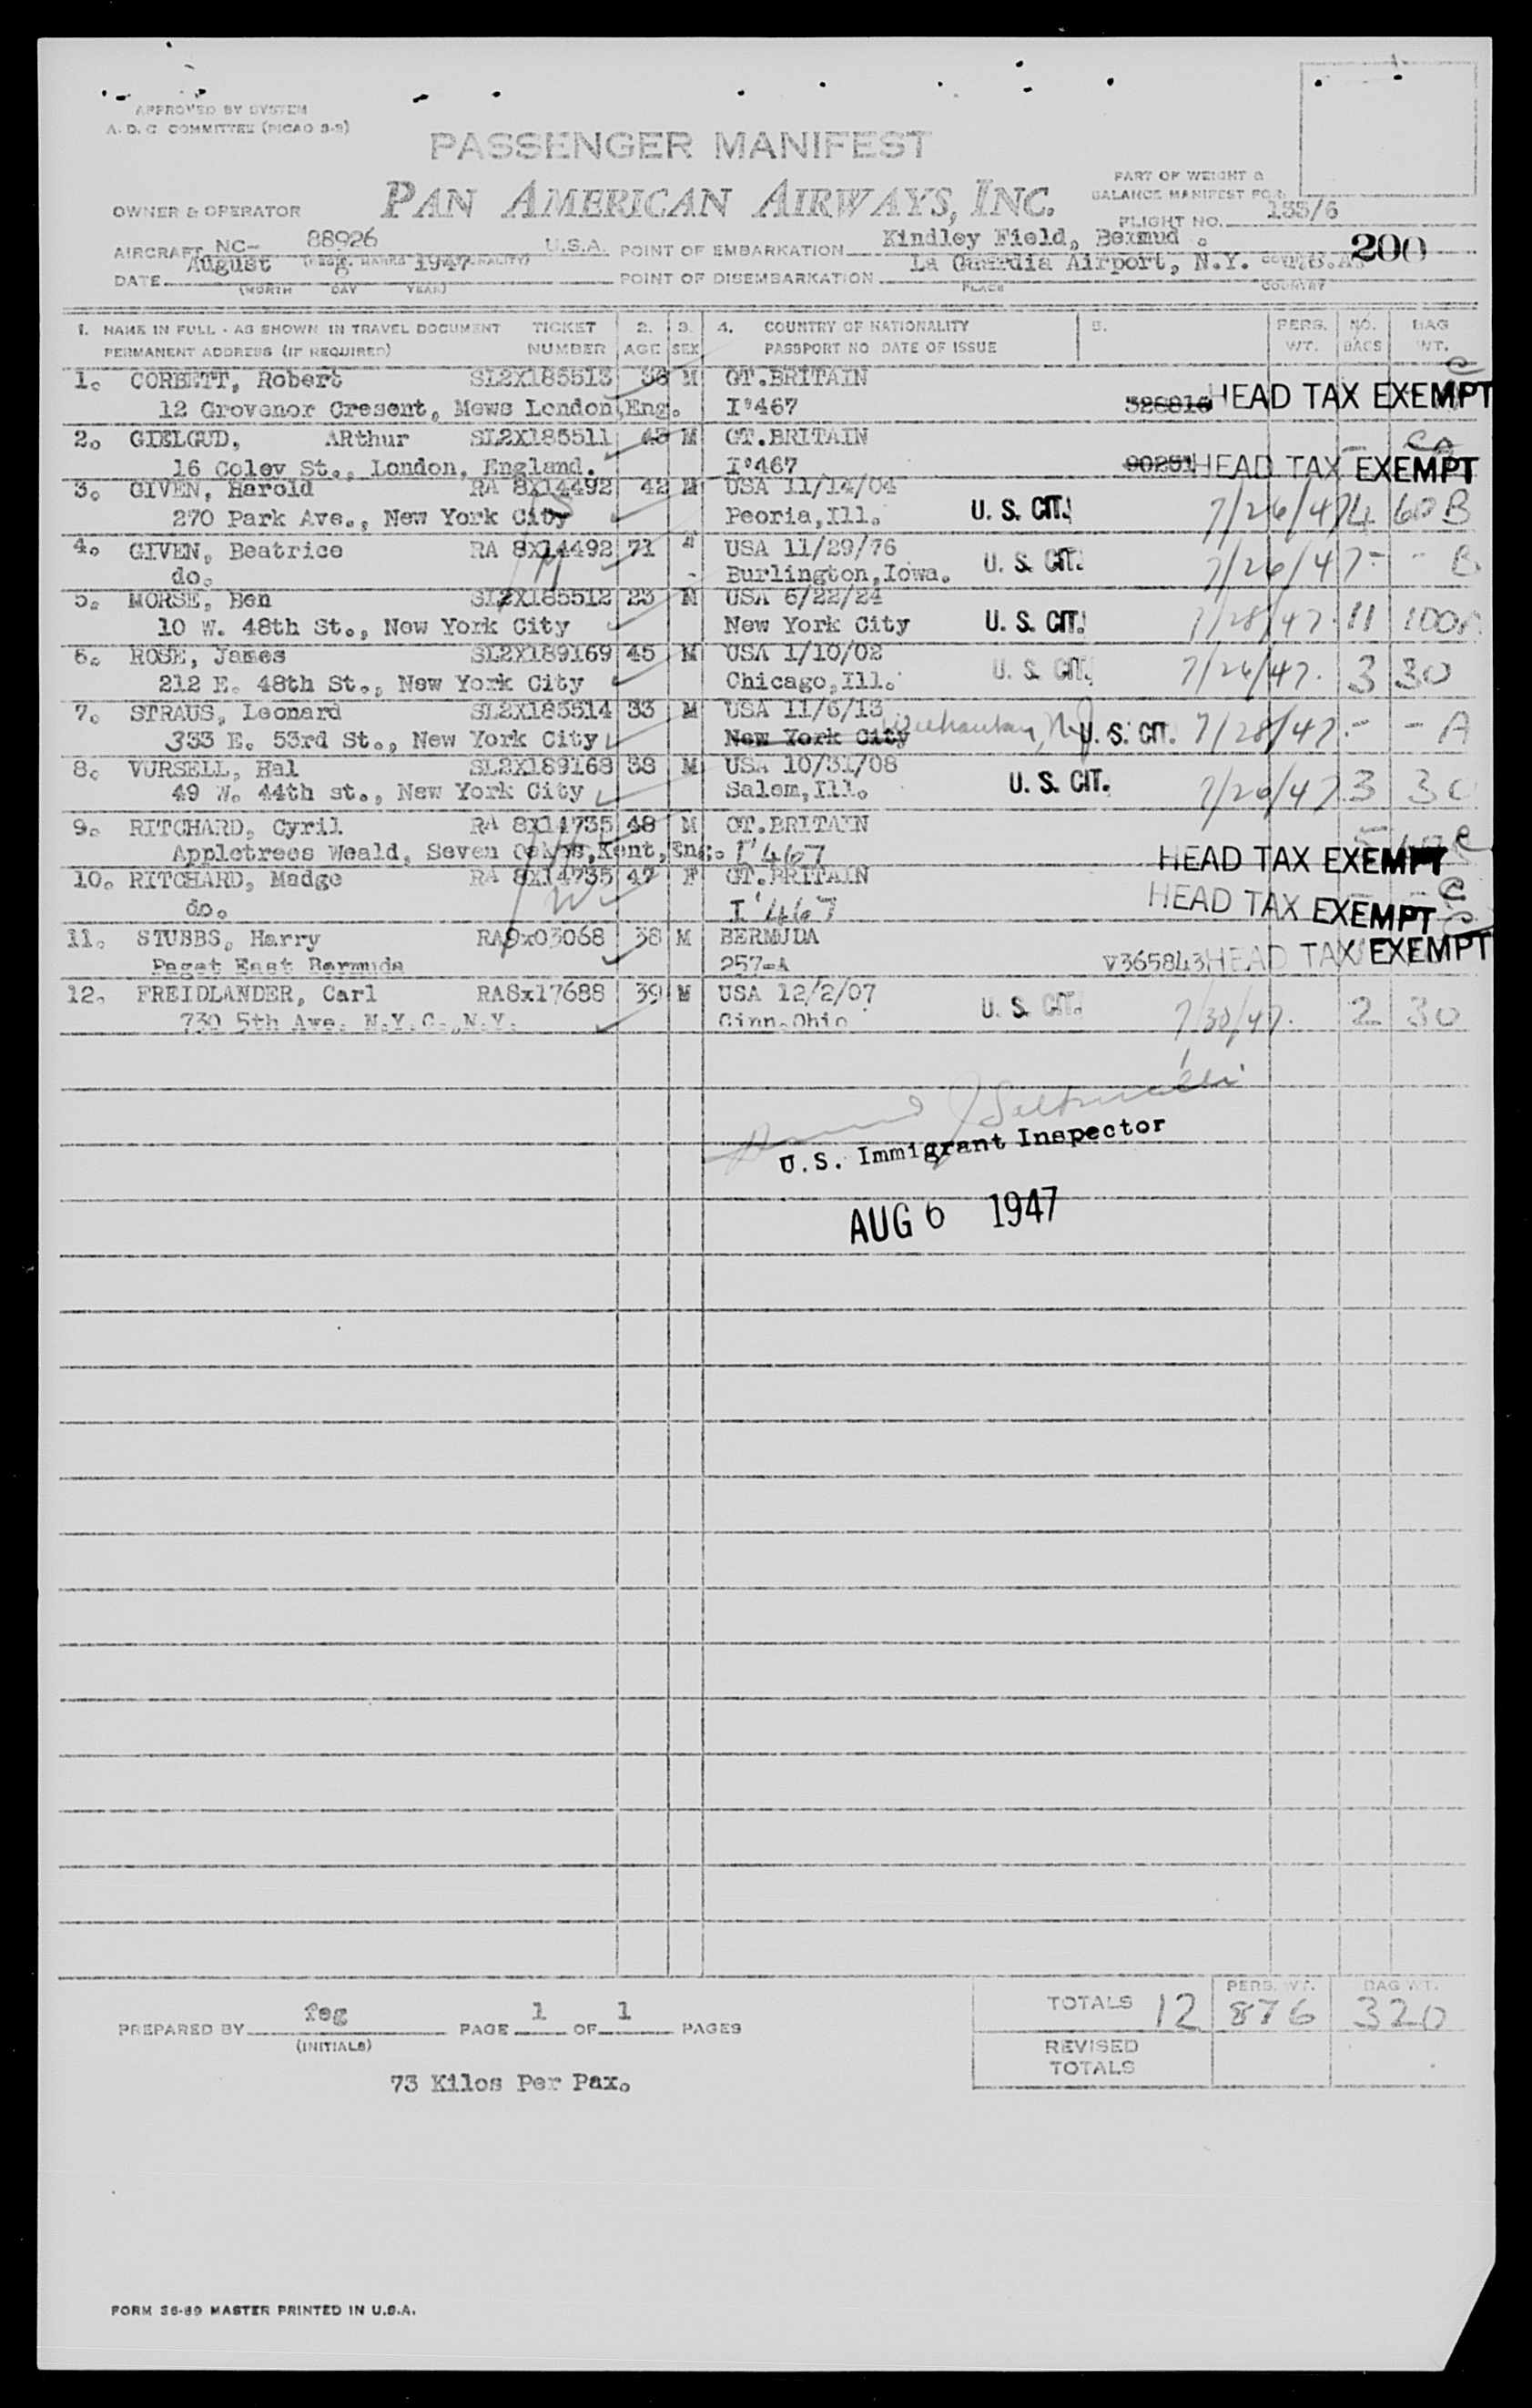 APPROVED BY SYSTEM
A. D. C COMMITTEE (PICAO 3-9)
PASSENGER MANIFEST
PAN AMERICAN AIRWAYS, INC.
PART OF WEIGHT &
BALANCE MANIFEST FOR:
OWNER & OPERATOR
FLIGHT NO. 155/6
AIRCRAFT NC- 88926 U.S.A. POINT OF EMBARKATION Kindley Field, Bermud .
200
DATE August 1947 POINT OF DISEMBARKATION La Guardia Airport, N.Y.
(MONTH DAY YEAR) PLACE COUNTRY
1. NAME IN FULL - AS SHOWN IN TRAVEL DOCUMENT TICKET 2. 3. 4. COUNTRY OF NATIONALITY 5. PERS. NO. BAG
PERMANENT ADDRESS (IF REQUIRED) NUMBER AGE SEX PASSPORT NO DATE OF ISSUE WT. BAGS WT.
1. CORBETT, Robert SL2X185513 36 M GT.BRITAIN
12 Grovenor Cresent, Mews London,Eng. I'467 HEAD TAX EXEMPT
2. GIELGUD, ARthur SL2X185511 45 M GT.BRITAIN
16 Coley St., London, England. I'467 90251 HEAD TAX EXEMPT
3. GIVEN, Harold RA 8X14492 42 M USA 11/14/04
270 Park Ave., New York City Peoria,Ill. U. S. CIT. 7/26/47 4 60 B
4. GIVEN, Beatrice RA 8X14492 71 USA 11/29/76
do. Burlington,Iowa. U. S. CIT. 7/26/47 - - B
5. MORSE, Ben SL2X185512 23 M USA 6/22/24
10 W. 48th St., New York City New York City U. S. CIT. 7/28/47. 11 100
6. ROSE, James SL2X189169 45 M USA 1/10/02
212 E. 48th St., New York City Chicago,Ill. U. S. CIT. 7/26/47. 3 30
7. STRAUS, Leonard SL2X185514 33 M USA 11/6/13
333 E. 53rd St., New York City New York City U. S. CIT. 7/28/47. - - A
8. VURSELL, Hal SL2X189168 38 M USA 10/31/08
49 W. 44th st., New York City Salem,Ill. U. S. CIT. 7/26/47 3 30
9. RITCHARD, Cyril RA 8X14735 48 M GT.BRITAIN
Appletrees Weald, Seven Oakes,Kent,Eng. I'467 HEAD TAX EXEMPT
10. RITCHARD, Madge RA 8X14735 47 F GT.BRITAIN
do. I'467 HEAD TAX EXEMPT
11. STUBBS, Harry RA9x03068 38 M BERMUDA
Paget East Bermuda 257-A V365843 HEAD TAX EXEMPT
12. FREIDLANDER, Carl RA8x17688 39 M USA 12/2/07
730 5th Ave. N.Y.C.,N.Y. Cinn.Ohio U. S. CIT. 7/30/47. 2 30
U.S. Immigrant Inspector
AUG 6 1947
TOTALS 12 PERS. WT. 876 BAG WT. 320
PREPARED BY feg PAGE 1 OF 1 PAGES
(INITIALS)
REVISED
TOTALS
73 Kilos Per Pax.
FORM 36-89 MASTER PRINTED IN U.S.A.